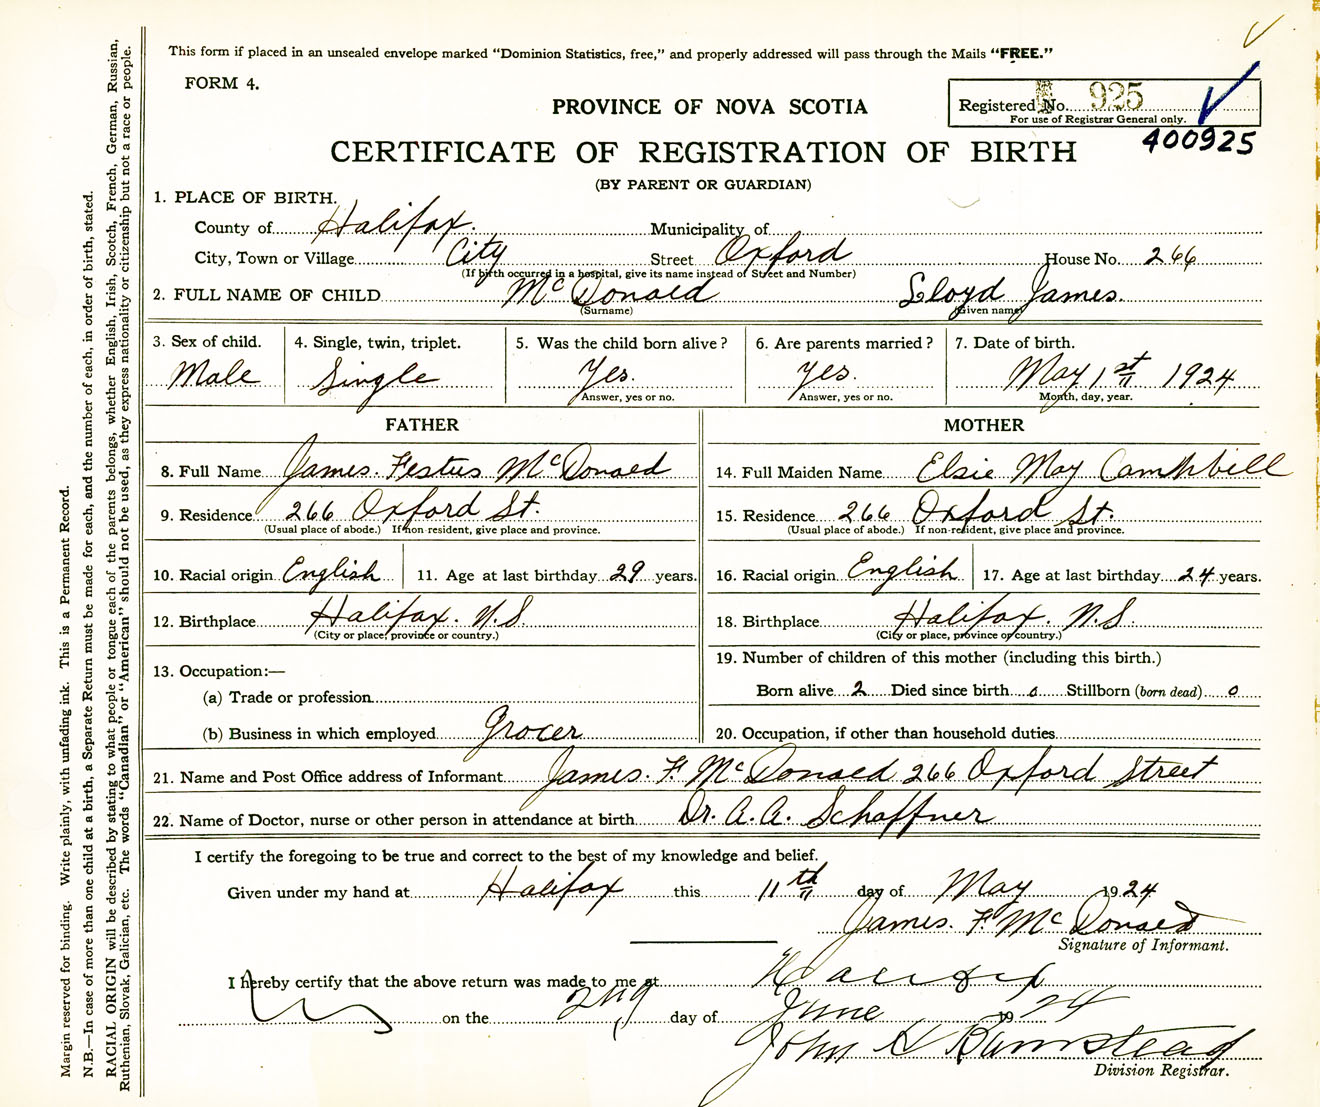 This form if placed in an unsealed envelope marked "Dominion Statistics, free," and properly addressed will pass through the Mails "FREE."
FORM 4.
PROVINCE OF NOVA SCOTIA
Registered No. 925
For use of Registrar General only.
400925
CERTIFICATE OF REGISTRATION OF BIRTH
(BY PARENT OR GUARDIAN)
1. PLACE OF BIRTH.
County of Halifax. Municipality of
City, Town or Village City Street Oxford House No. 266
(If birth occurred in a hospital, give its name instead of Street and Number)
2. FULL NAME OF CHILD McDonald Lloyd James.
(Surname) (Given name)
3. Sex of child. 4. Single, twin, triplet. 5. Was the child born alive? 6. Are parents married? 7. Date of birth.
Male Single Yes. Yes. May 1st 1924
Answer, yes or no. Answer, yes or no. Month, day, year.
FATHER MOTHER
8. Full Name James. Festus McDonald 14. Full Maiden Name Elsie May Campbell
9. Residence 266 Oxford St. 15. Residence 266 Oxford St.
(Usual place of abode.) If non-resident, give place and province. (Usual place of abode.) If non-resident, give place and province.
10. Racial origin English 11. Age at last birthday 29 years. 16. Racial origin English 17. Age at last birthday 24 years.
12. Birthplace Halifax. N.S. 18. Birthplace Halifax. N.S.
(City or place, province or country.) (City or place, province or country.)
13. Occupation:— 19. Number of children of this mother (including this birth.)
(a) Trade or profession Born alive 2 Died since birth 0 Stillborn (born dead) 0
(b) Business in which employed Grocer 20. Occupation, if other than household duties
21. Name and Post Office address of Informant James. F. McDonald 266 Oxford Street
22. Name of Doctor, nurse or other person in attendance at birth Dr. A. A. Schaffner
I certify the foregoing to be true and correct to the best of my knowledge and belief.
Given under my hand at Halifax this 11th day of May 1924
James. F. McDonald
Signature of Informant.
I hereby certify that the above return was made to me at Halifax
on the 2nd day of June 1924
John H Barnstead
Division Registrar.
Margin reserved for binding. Write plainly, with unfading ink. This is a Permanent Record.
N.B.—In case of more than one child at a birth, a Separate Return must be made for each, and the number of each, in order of birth, stated.
RACIAL ORIGIN will be described by stating to what people or tongue each of the parents belongs, whether English, Irish, Scotch, French, German, Russian,
Ruthenian, Slovak, Galician, etc. The words "Canadian" or "American" should not be used, as they express nationality or citizenship but not a race or people.